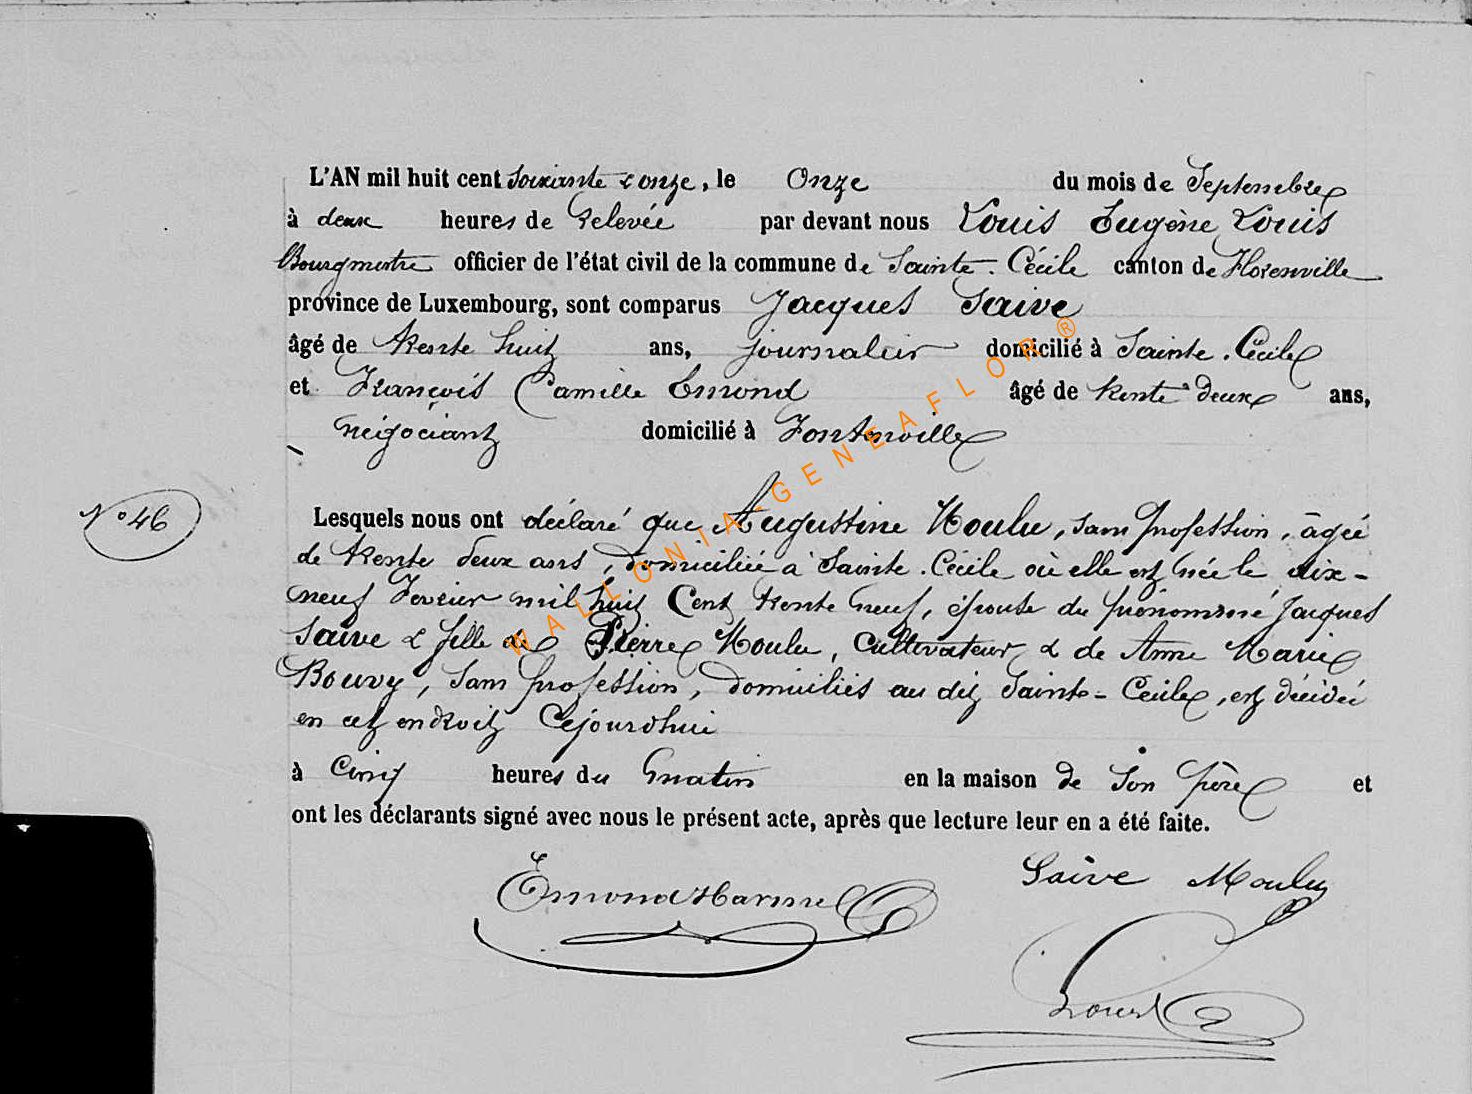 L'AN mil huit cent soixante & onze, le Onze du mois de Septembre
à deux heures de relevée par devant nous Louis Eugène Louis
Bourgmestre officier de l'état civil de la commune de Sainte-Cécile canton de Florenville
province de Luxembourg, sont comparus Jacques Saive
âgé de trente huit ans, journalier domicilié à Sainte-Cécile
et François Camille Emond âgé de trente-deux ans,
négociant domicilié à Fontenoille
N° 46
Lesquels nous ont déclaré que Augustine Moulu, sans profession, âgée
de trente deux ans, domiciliée à Sainte-Cécile où elle est née le dix-
neuf Fevrier mil huit Cent trente neuf, épouse du prénommé Jacques
Saive & fille de Pierre Moulu, Cultivateur, & de Anne Marie
Bouvy, sans profession, domiciliés au dit Sainte-Cécile, est décédée
en cet endroit Cejourd'hui
à Cinq heures du matin en la maison de son père et
ont les déclarants signé avec nous le présent acte, après que lecture leur en a été faite.
Emond Harme
Saive Moulu
Louis
WALLONIA-GENEAFLOR®